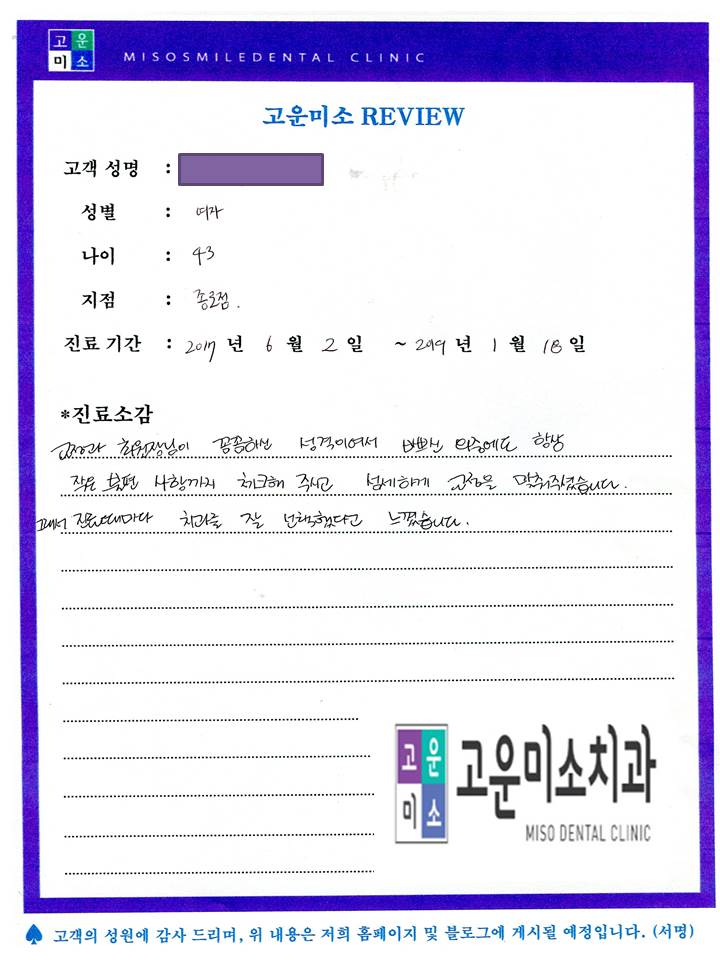 고운
미소
MISOSMILEDENTAL CLINIC
고운미소 REVIEW
고객 성명 :
성별 : 여자
나이 : 43
지점 : 종로점.
진료 기간 : 2017 년 6 월 2 일 ~ 2019 년 1 월 18 일
*진료소감
교정과 최원장님이 꼼꼼하신 성격이여서 바쁘신 와중에도 항상
작은 불편 사항까지 체크해 주시고 섬세하게 교정을 맞춰주셨습니다.
그래서 진료때마다 치과를 잘 선택했다고 느꼈습니다.
고운
미소
고운미소치과
MISO DENTAL CLINIC
고객의 성원에 감사 드리며, 위 내용은 저희 홈페이지 및 블로그에 게시될 예정입니다. (서명)